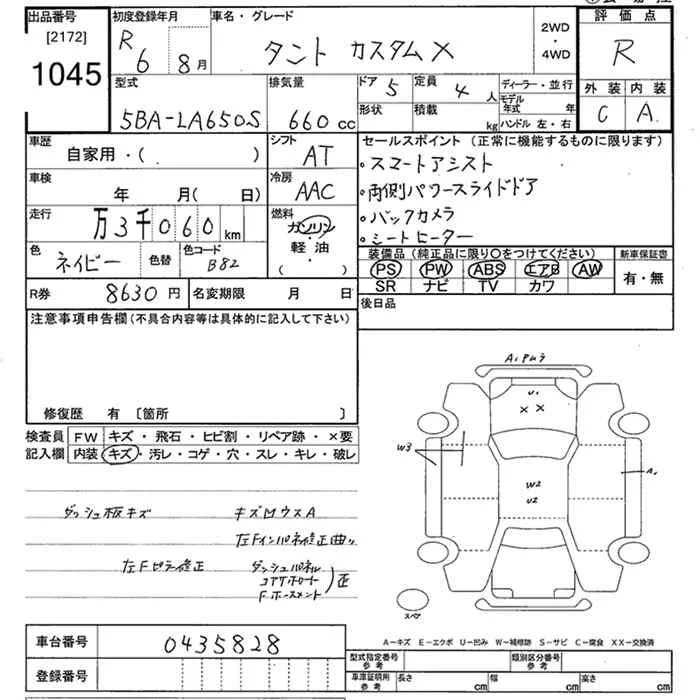 出品番号
[2172]
1045
初度登録年月
R 6 8月
車名・グレード
タント カスタムX
2WD
・
4WD
評価点
R
外装 内装
C A
型式
5BA-LA650S
排気量
660 cc
ドア 5
定員 4 人
形状
積載 kg
ディーラー・並行
モデル年式 年
ハンドル 左・右
車歴
自家用・( )
シフト
AT
車検
年 月( 日)
冷房
AAC
走行
万3千060 km
燃料
ガソリン
軽・油
( )
色
ネイビー
色替
色コード
B82
セールスポイント(正常に機能するものに限ります)
・スマートアシスト
・両側パワースライドドア
・バックカメラ
・シートヒーター
装備品(純正品に限り〇をつけてください)
PS PW ABS エアB AW
SR ナビ TV カワ
新車保証書
有・無
R券 8630円
名変期限 月 日
後日品
注意事項申告欄(不具合内容等は具体的に記入して下さい)
修復歴 有 〔箇所 〕
検査員
記入欄
FW キズ・飛石・ヒビ割・リペア跡・×要
内装 キズ・汚レ・コゲ・穴・スレ・キレ・破レ
ダッシュ板キズ キズMウスA
左Fインパネ修正曲り
左Fピラー修正 ダッシュパネル
コアサポート
F.ホースメント
正
U1
××
W3
W2
U2
A1
スペア
A-キズ E-エクボ U-凹み W-補修跡 S-サビ C-腐食 XX-交換済
車台番号 0435828
登録番号
型式指定番号
参考
類別区分番号
参考
車庫証明用
参考
長さ cm
幅 cm
高さ cm